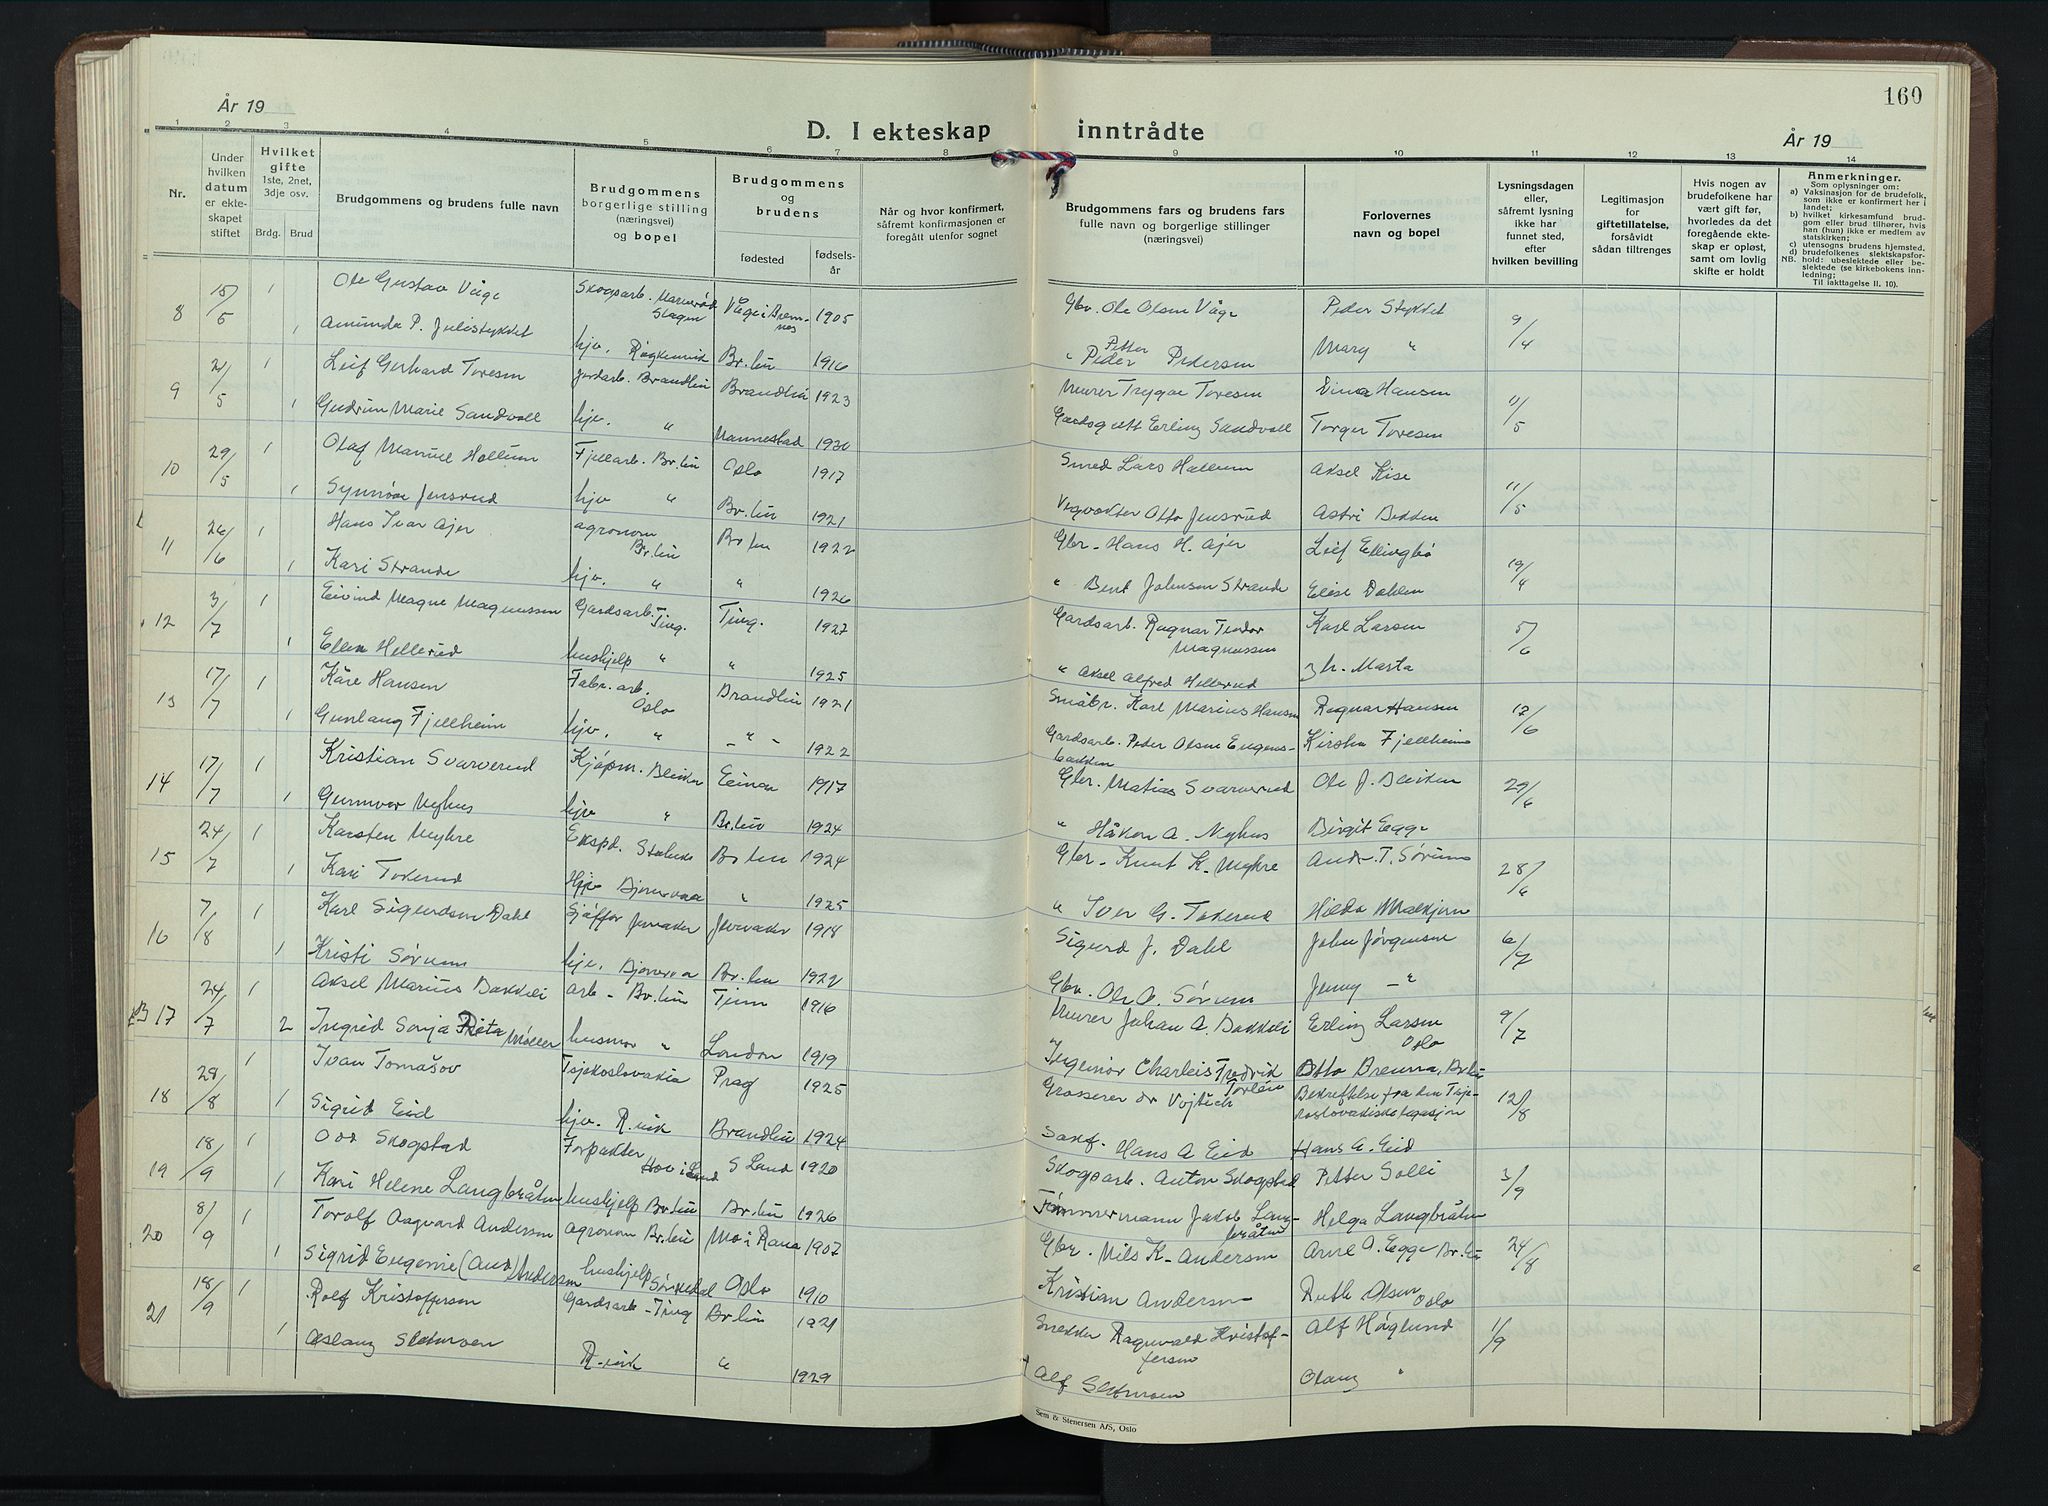 160
År 19
År 19
D. I ekteskap inntrådte
1 2 3 4 5 6 7 8 9 10 11 12 13 14
Nr.
Under hvilken datum er ekte-skapet stiftet
Hvilket gifte
1ste, 2net, 3dje osv.
Brdg. Brud
Brudgommens og brudens fulle navn
Brudgommens borgerlige stilling (næringsvei) og bopel
Brudgommens og brudens
fødested
fødsels-år
Når og hvor konfirmert, såfremt konfirmasjonen er foregått utenfor sognet
Brudgommens fars og brudens fars fulle navn og borgerlige stillinger (næringsvei)
Forlovernes navn og bopel
Lysningsdagen eller, såfremt lysning ikke har funnet sted, efter hvilken bevilling
Legitimasjon for giftetillatelse, forsåvidt sådan tiltrenges
Hvis nogen av brudefolkene har vært gift før, hvorledes da det foregående ekte-skap er opløst, samt om lovlig skifte er holdt
Anmerkninger.
Som oplysninger om:
a) Vaksinasjon for de brudefolk, som ikke er konfirmert her i landet;
b) hvilket kirkesamfund brud-gom eller brud tilhører, hvis han (hun) ikke er medlem av statskirken;
c) utensogns brudens hjemsted.
d) brudefolkenes slektskapsfor-
NB. hold: ubeslektede eller be-slektede (se kirkebokens inn-ledning;
Til iakttagelse II, 10).
8 15/5 1 Ole Gustav Våge Skogsarb. Slagen Våge i Brem-nes 1905 Gbr. Ole Olsen Våge Peder Stykket 9/4
1 Amunda P. Julistykket hjv. Røykenvik Br.bu 1916 " Petter Peder Pedersen Mary "
9 21/5 1 Leif Gerhard Toresen Jordarb. Brandbu Brandbu 1923 Murer Trygve Toresen Hansen 11/5
1 Gudrun Marie Sandvoll hjv. " Mannestad 1930 Gardsgutt Erling Sandvoll Torger Toresen
10 29/5 1 Olaf Manuel Hollum Fjellarb. Br.bu Oslo 1917 Smed Lars Hollum Aksel Kise 11/5
1 Synnøve Jensrud hjv " Br.bu 1921 Vegvokter Otto Jensrud Astri Bekken
11 26/6 1 Hans Ivar Ajer agronom Br.bu Br bu 1922 Gbr. Hans H. Ajer Leif Ellingbø 19/4
1 Kari Strande hjv. " " 1926 " Bent Johnsen Strande Elise Dahlen
12 3/7 1 Eivind Magne Magnussen Gardsarb. Ting. Ting. 1927 Gardsarb. Ragnar Teodor Magnussen Karl Larsen 5/6
1 Ellen Hellerud hushjelp " " 1925 " Aksel Alfred Hellerud Marta
13 17/7 1 Kåre Hansen Fabr. arb. Oslo Brandbu 1921 Småbr. Karl Marius Hansen Ragnar Hansen 17/6
1 Gunlaug Fjellheim hjv. " - " - 1922 Gardsarb. Peder Olsen Engens-bakken Kirsten Fjellheim
14 17/7 1 Kristian Svarverud Kjøpm. Bleiken Eina 1917 Gbr. Matias Svarverud Ole J. Bleiken 29/6
1 Gunnvor Nyhus hjv " Br.bu 1924 " Håkon A. Nyhus Birgit Egge
15 24/7 1 Karsten Myhre Ekspd. Br bu 1924 Gbr. Knut K. Myhre Andr. T. Sørum 28/6
1 Kari Tokerud Hjv Bjoneroa " 1925 " Iver G. Tokerud Hilda
16 7/8 1 Karl Sigurdsen Dahl Sjåffør Jevnaker Jevnaker 1918 Sigurd J. Dahl John Jørgensen 6/7
1 Kristi Sørum hjv. Bjoneroa Br.bu 1922 Gbr. Ole O. Sørum Jenny - "
17 24/7 1 Aksel Marius Bakkeli arb - Br.bu Tinn 1916 Murer Johan A. Bakkeli Erling Larsen Oslo 9/7
2 Ingrid Sonja Rita Møller husmor " London 1919 Ingeniør Charles Fredrik Otto Brenna, Br.bu
18 28/8 1 Ivan Tomašov Tsjekoslovakia Prag 1925 Grosserer dr Vojtiech Bekreftelse fra den Tsje-koslovakiske legasjon 12/8
1 Sigrid Eid hjv. R.vik Brandbu 1924 Hans A Eid Hans A. Eid
19 18/9 1 Odd Skogstad Forpakter Hov i Land S Land 1920 Skogsarb. Anton Skogstad Petter Solli 3/9
1 Kari Helene Langbråten hushjelp Br.bu Br.bu 1926 Tømmermann Jakob Lang-bråten Helga Langbråten
20 8/9 1 Torolf Aagvard Andersen agronom Br.bu Mo i Rana 1907 Gbr. Nils K. Andersen Arne A. Egge Br.bu 24/8
1 Sigrid Eugenie (Aud) Andersen hushjelp Sørkedal Oslo 1910 Kristian Andersen Ruth Olsen Oslo
21 18/9 1 Rolf Kristoffersen Gardsarb - Ting Br bu 1921 Snekker Ragnvald Kristof-fersen Alf Høglund 1/9
1 Aslaug Sletmoen R.vik " 1929 Alf Sletmoen Olaug "
Sem & Stenersen A/S, Oslo